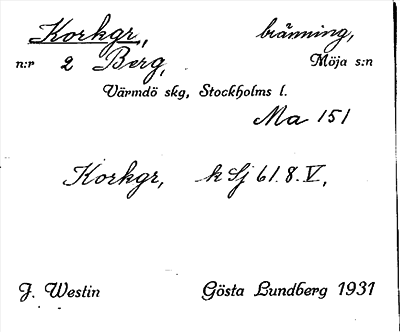 Korkgr, bränning,
n:r 2 Berg, Möja s:n
Värmdö skg, Stockholms l.
Ma 151
Korkgr, k Sj 61.8.V,
J. Westin Gösta Lundberg 1931